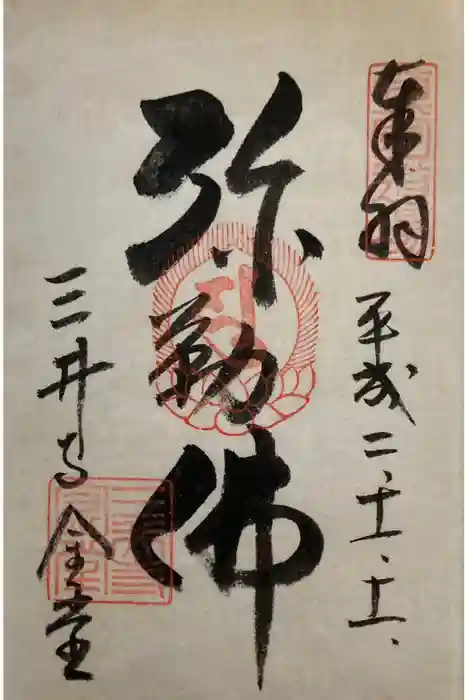 奉拝
平成二、十一、十一、
弥勒佛
三井寺金堂